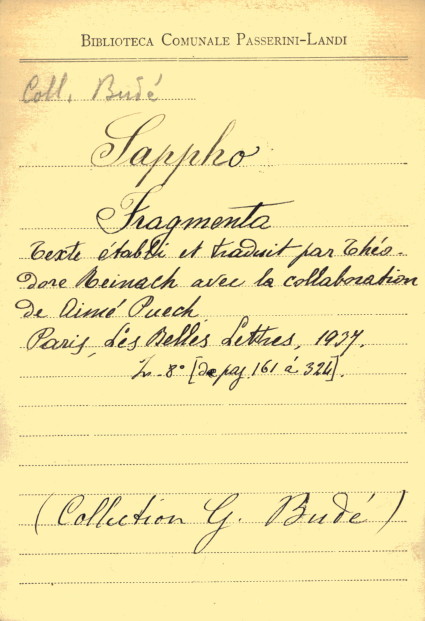 BIBLIOTECA COMUNALE PASSERINI-LANDI
Coll. Budé
Sappho
Fragmenta
Texte établi et traduit par Théo-
dore Reinach avec la collaboration
de Aimé Puech
Paris, Les Belles Lettres, 1937.
8° [de pag 161 à 324].
(Collection G. Budé)